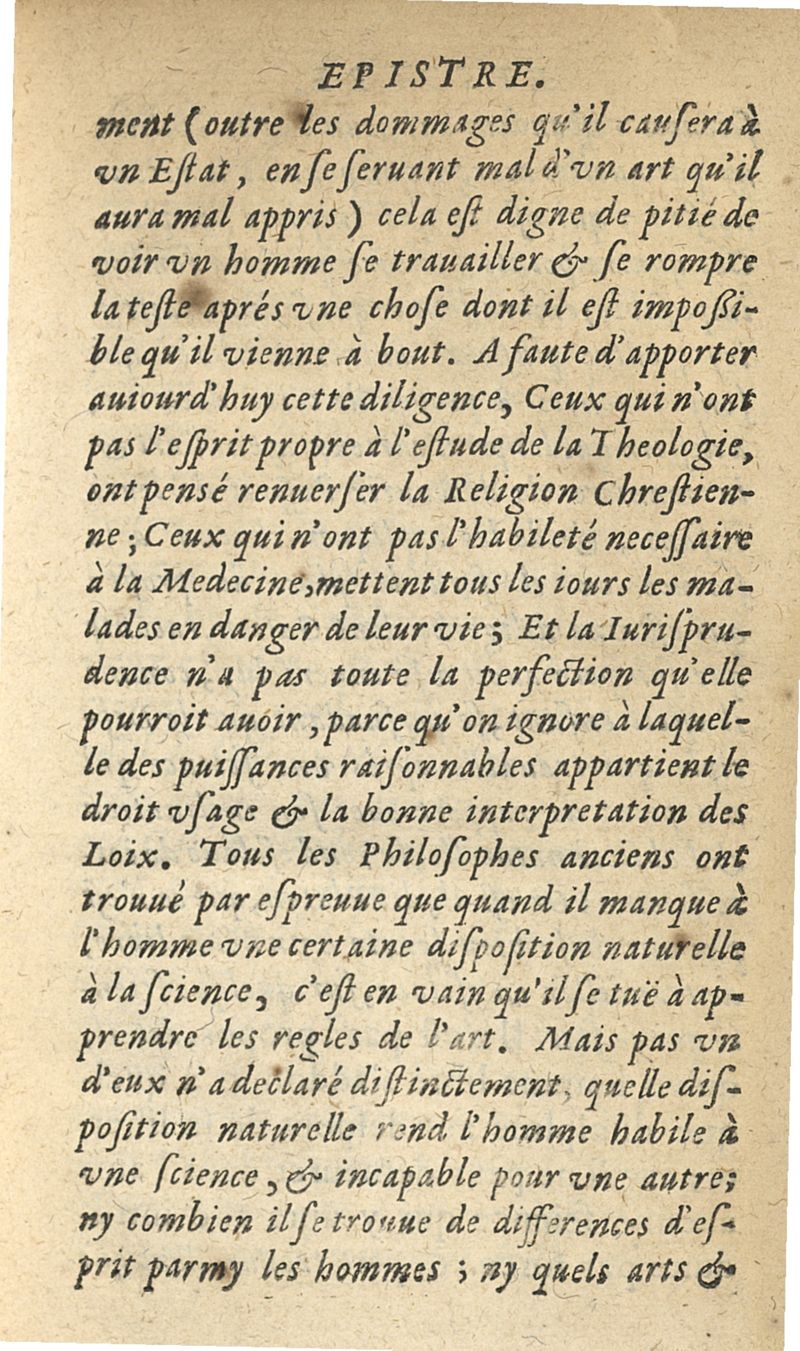 EPISTRE.
ment (outre les dommages qu'il cauſera à
vn Eſtat, en ſe ſeruant mal d'vn art qu'il
aura mal appris) cela eſt digne de pitié de
voir vn homme ſe trauailler & ſe rompre
la teſte aprés vne choſe dont il eſt impoßi-
ble qu'il vienne à bout. A faute d'apporter
auiourd'huy cette diligence, Ceux qui n'ont
pas l'eſprit propre à l'eſtude de la Theologie,
ont penſé renuerſer la Religion Chreſtien-
ne; Ceux qui n'ont pas l'habileté neceſſaire
à la Medecine, mettent tous les iours les ma-
lades en danger de leur vie; Et la Iuriſpru-
dence n'a pas toute la perfection qu'elle
pourroit auoir, parce qu'on ignore à laquel-
le des puiſſances raiſonnables appartient le
droit vſage & la bonne interpretation des
Loix. Tous les Philoſophes anciens ont
trouué par eſpreuue que quand il manque à
l'homme vne certaine diſpoſition naturelle
à la ſcience, c'eſt en vain qu'il ſe tuë à ap-
prendre les regles de l'art. Mais pas vn
d'eux n'a declaré diſtinctement, quelle diſ-
poſition naturelle rend l'homme habile à
vne ſcience, & incapable pour vne autre;
ny combien il ſe trouue de differences d'eſ-
prit parmy les hommes; ny quels arts &